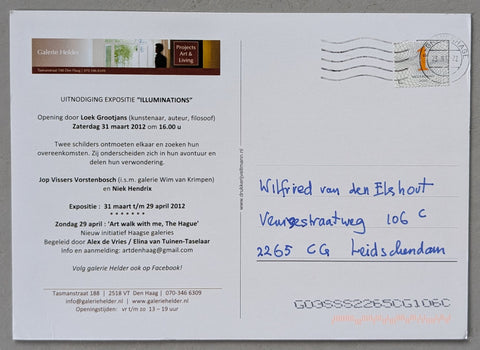 Galerie Helder
Projects
Art &
Living
Tasmanstraat 188 Den Haag | 070 346 6309
UITNODIGING EXPOSITIE "ILLUMINATIONS"
Opening door Loek Grootjans (kunstenaar, auteur, filosoof)
Zaterdag 31 maart 2012 om 16.00 u
Twee schilders ontmoeten elkaar en zoeken hun
overeenkomsten. Zij onderscheiden zich in hun avontuur en
delen hun verwondering.
Jop Vissers Vorstenbosch (i.s.m. galerie Wim van Krimpen)
en Niek Hendrix
Expositie : 31 maart t/m 29 april 2012
* * * * * * *
Zondag 29 april : 'Art walk with me, The Hague'
Nieuw initiatief Haagse galeries
Begeleid door Alex de Vries / Elina van Tuinen-Taselaar
Info en aanmelding: artdenhaag@gmail.com
Volg galerie Helder ook op Facebook!
Tasmanstraat 188 | 2518 VT Den Haag | 070-346 6309
info@galeriehelder.nl | www.galeriehelder.nl
Openingstijden: vr t/m zo 13 – 19 uur
www.drukkerijveltmano.nl
Wilfried van den Elshout
Veursestraatweg 106 C
2265 CG Leidschendam
G03SSS2265CG106C